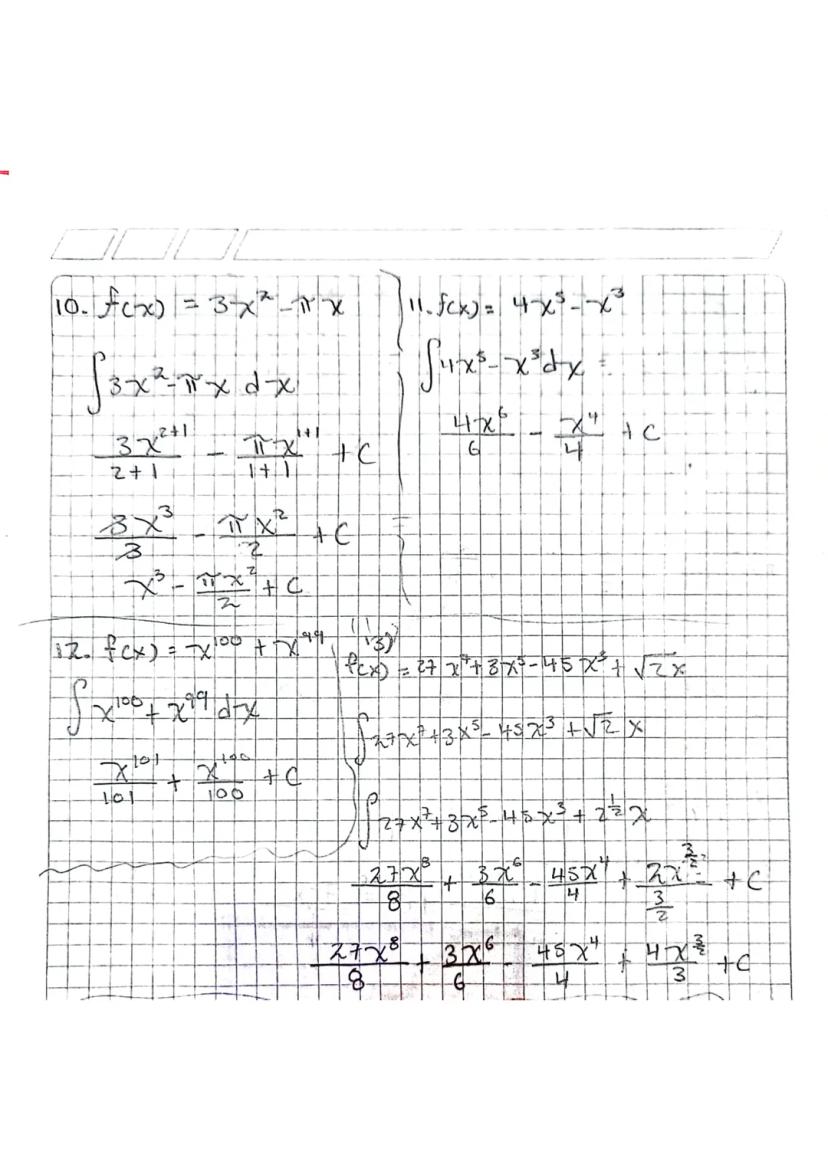 10. f(x) = 3x² - πx
∫3x² - πx dx
3x²⁺¹/2+1 - πx¹⁺¹/1+1 + C
3x³/3 - πx²/2 + C
x³ - πx²/2 + C
11. f(x) = 4x⁵ - x³
∫4x⁵ - x³dx =
4x⁶/6 - x⁴/4 + C
12. f(x) = x¹⁰⁰ + x⁹⁹
∫x¹⁰⁰ + x⁹⁹ dx
x¹⁰¹/101 + x¹⁰⁰/100 + C
13)
f(x) = 27x⁷ + 3x⁵ - 45x³ + √2x
∫27x⁷ + 3x⁵ - 45x³ + √2 x
∫27x⁷ + 3x⁵ - 45x³ + 2^(1/2) x
27x⁸/8 + 3x⁶/6 - 45x⁴/4 + 2x^(3/2)/(3/2) + C
27x⁸/8 + 3x⁶/6 - 45x⁴/4 + 4x^(3/2)/3 + C